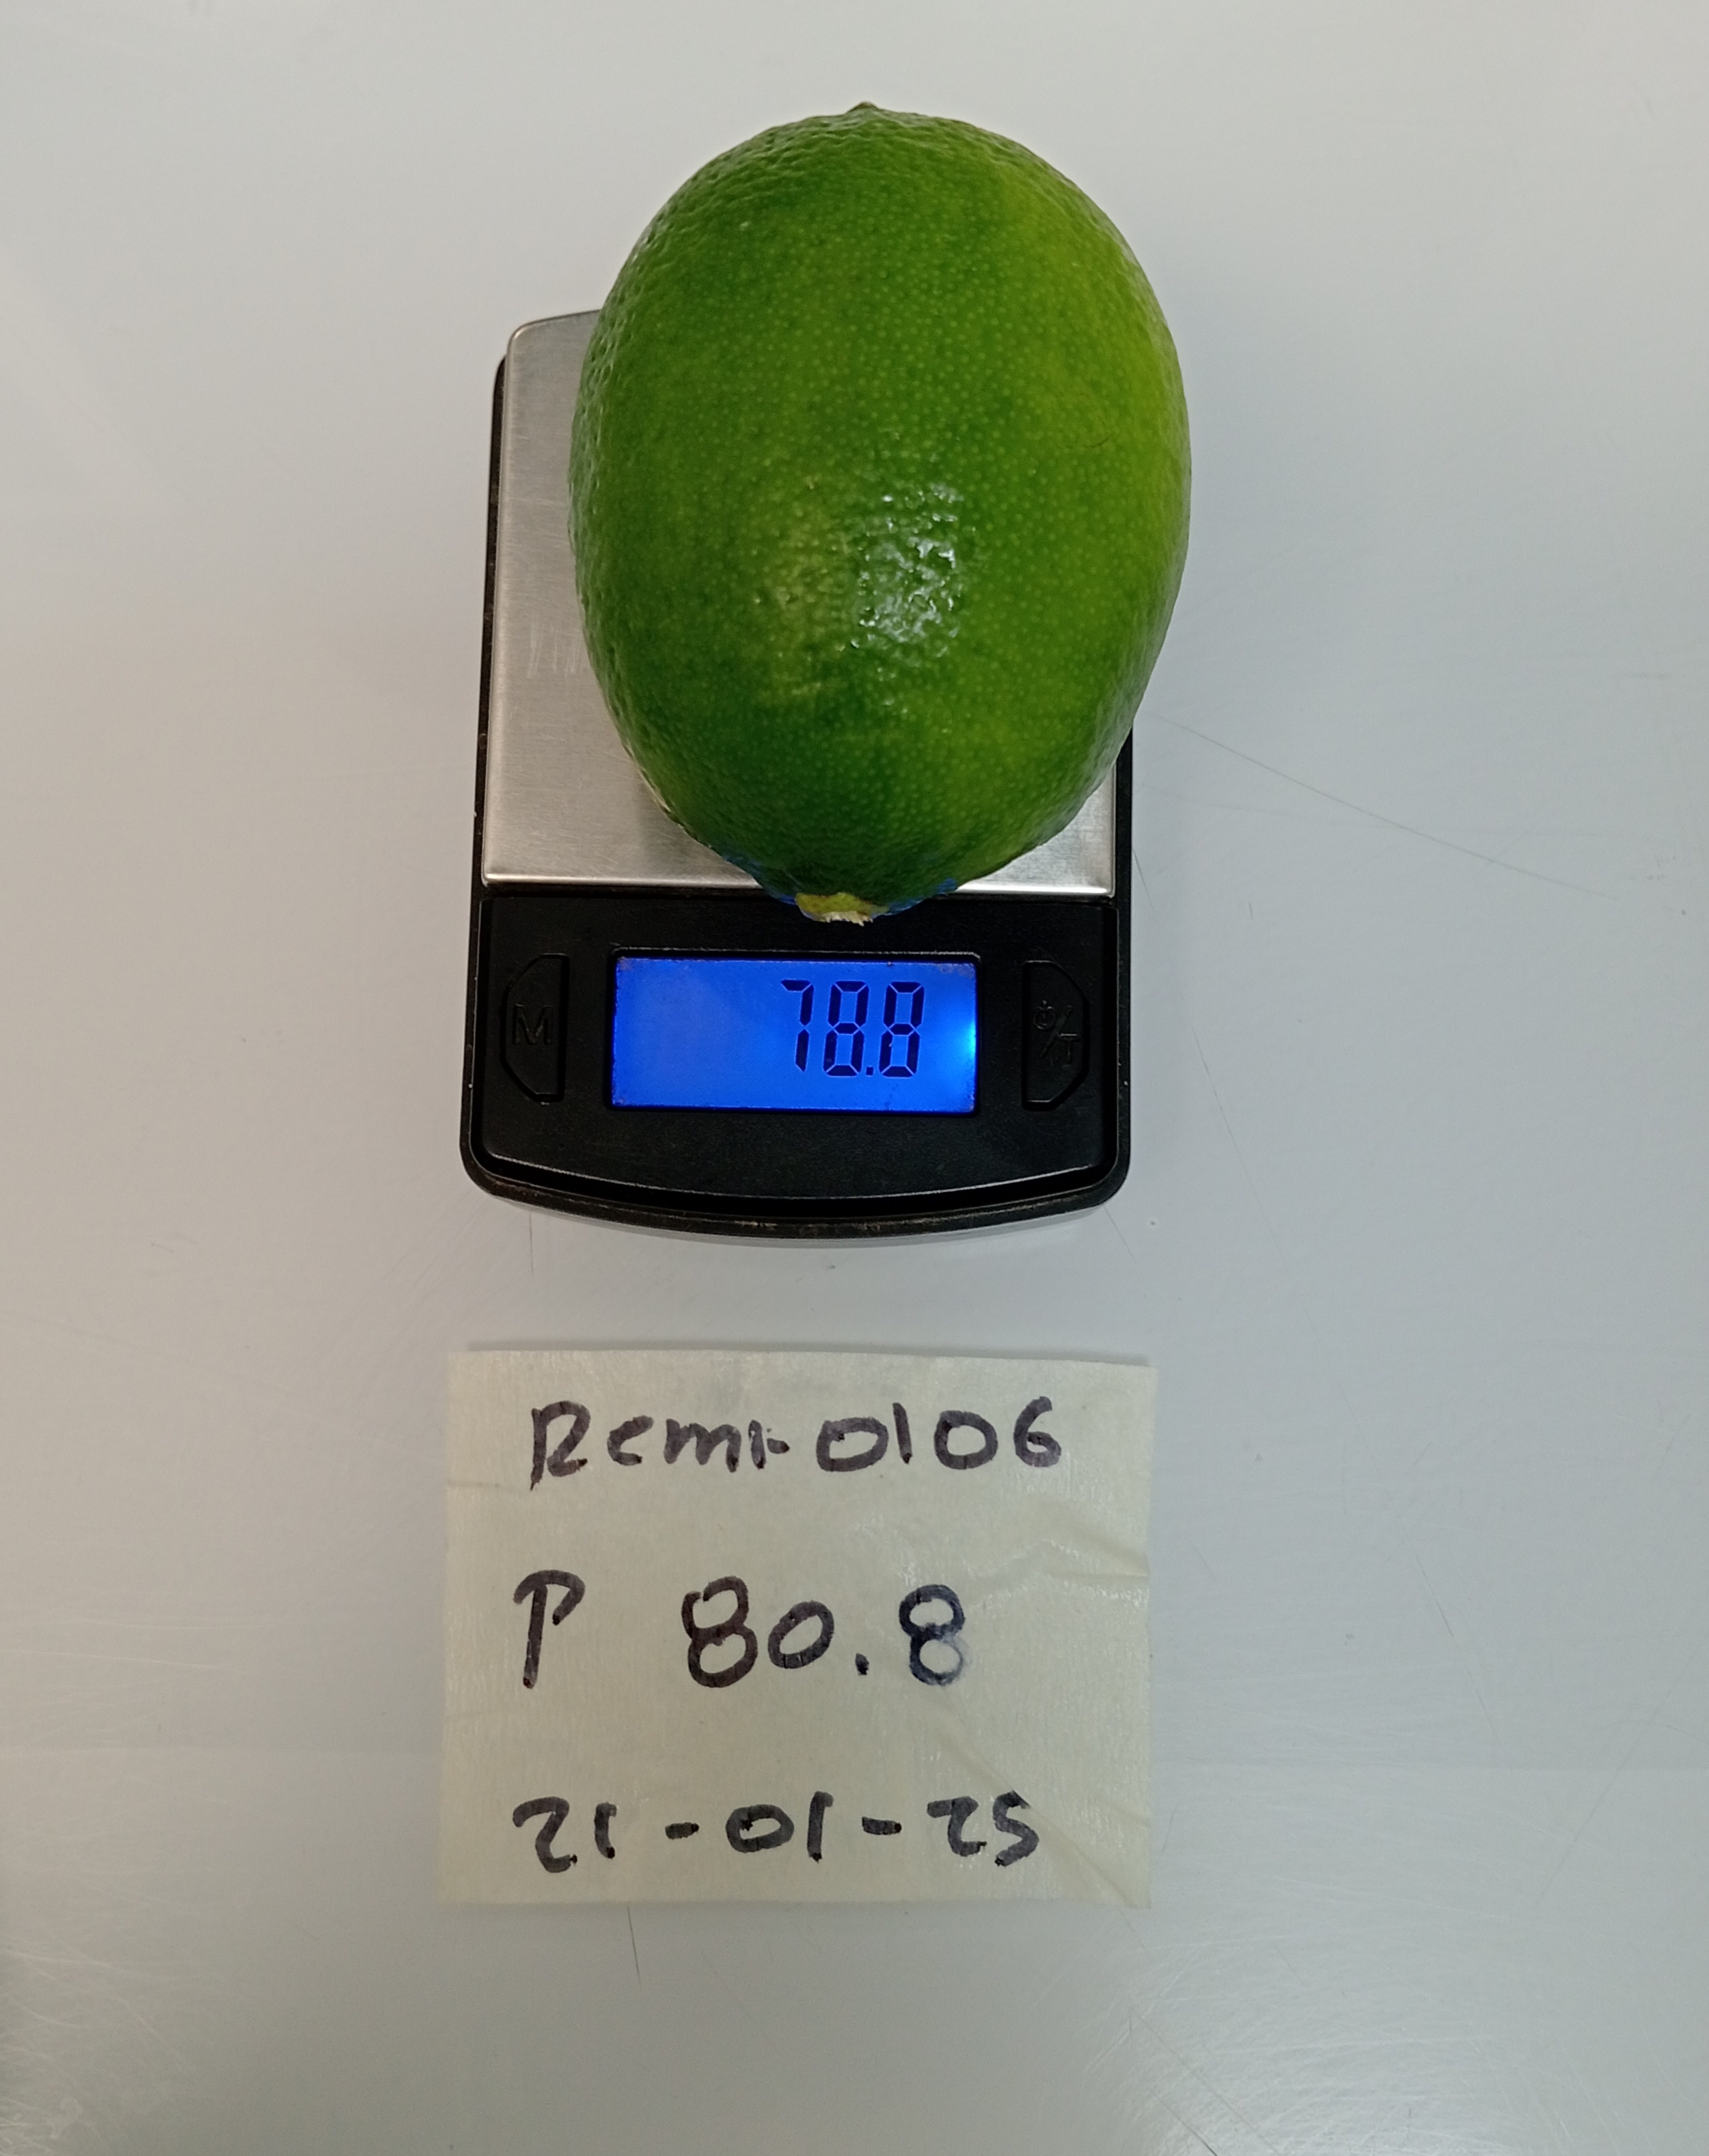 78.8
M
/T
Remi-0106
P 80.8
21-01-25